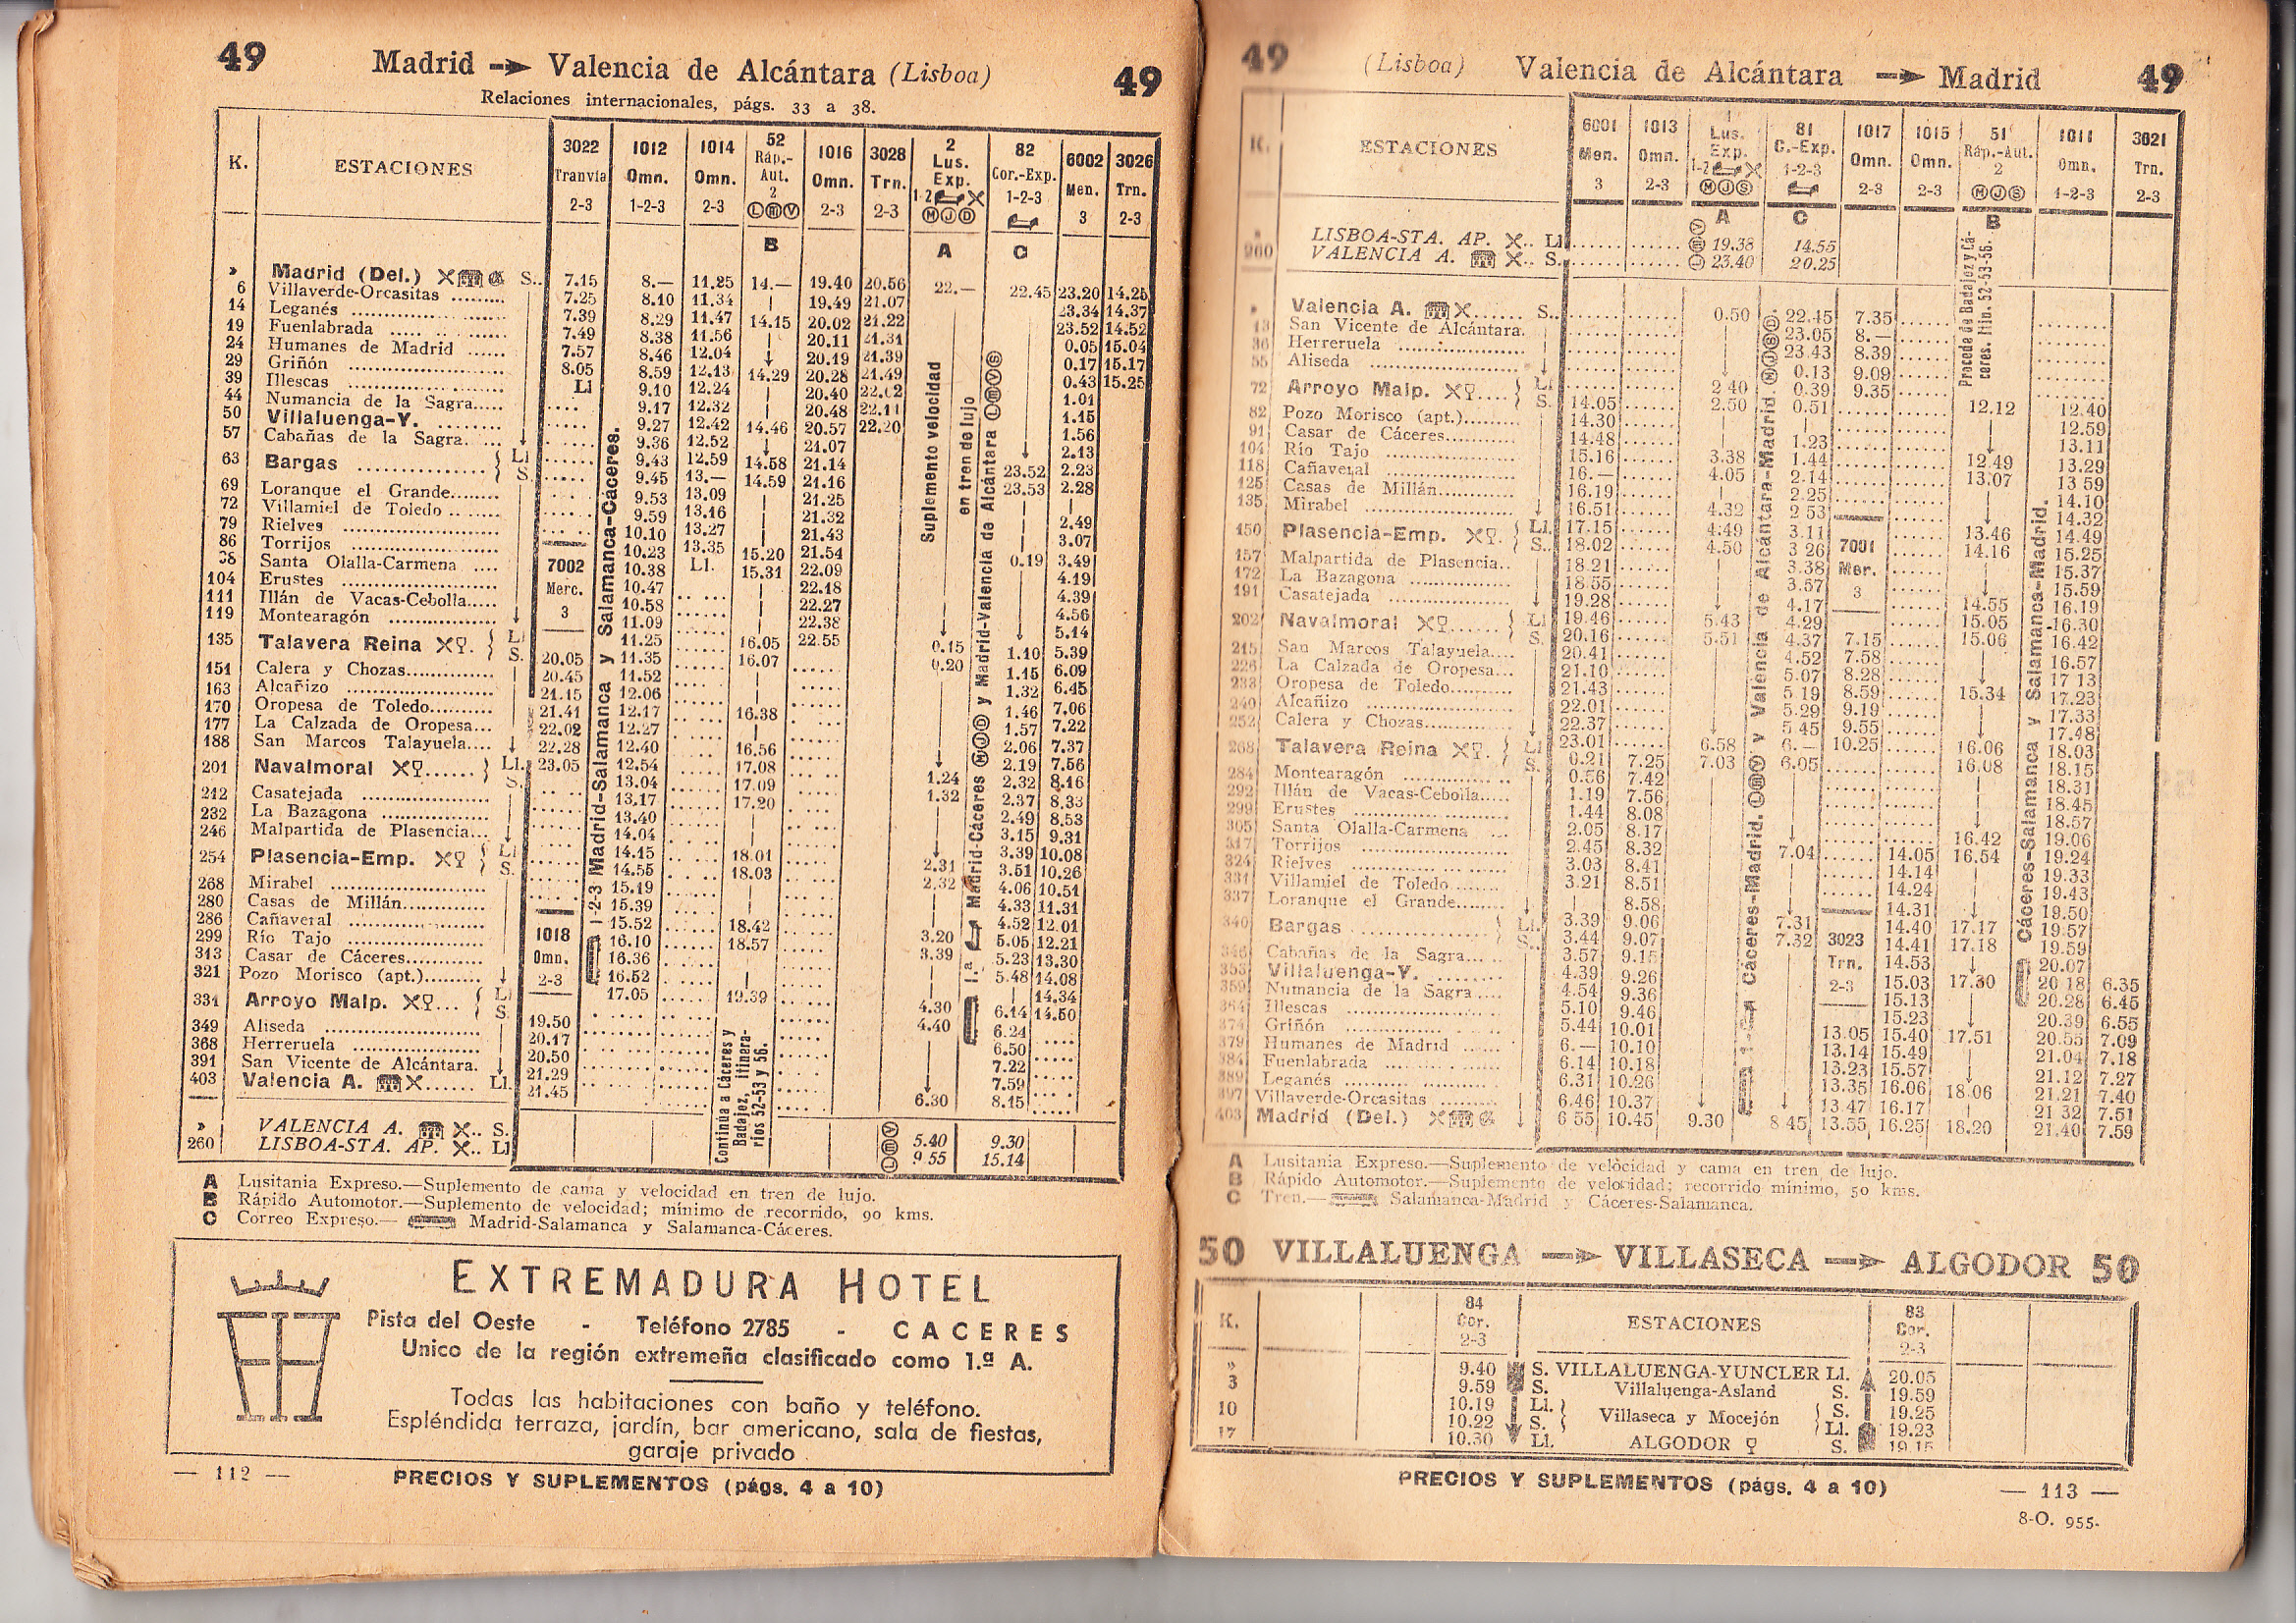 49 Madrid → Valencia de Alcántara (Lisboa) 49
Relaciones internacionales, págs. 33 a 38.
K. ESTACIONES 3022 Tranvía 2-3 1012 Omn. 1-2-3 1014 Omn. 2-3 52 Ráp.-Aut. 2 ⓁⓜⓋ 1016 Omn. 2-3 3028 Trn. 2-3 2 Lus. Exp. 1-2 ⓂⒿⒹ 82 Cor.-Exp. 1-2-3 6002 Men. 3 3026 Trn. 2-3
B A C
» Madrid (Del.) S.. 7.15 8.— 11.25 14.— 19.40 20.56 22.— 22.45 23.20 14.25
6 Villaverde-Orcasitas 7.25 8.10 11.34 19.49 21.07 23.34 14.37
14 Leganés 7.39 8.29 11.47 14.15 20.02 21.22 23.52 14.52
19 Fuenlabrada 7.49 8.38 11.56 20.11 21.31 0.05 15.04
24 Humanes de Madrid 7.57 8.46 12.04 20.19 21.39 0.17 15.17
29 Griñón 8.05 8.59 12.13 14.29 20.28 21.49 0.43 15.25
39 Illescas Ll 9.10 12.24 20.40 22.02 1.01
44 Numancia de la Sagra 9.17 12.32 20.48 22.11 1.15
50 Villaluenga-Y. 9.27 12.42 14.46 20.57 22.20 1.56
57 Cabañas de la Sagra. 9.36 12.52 21.07 2.13
63 Bargas Ll 9.43 12.59 14.58 21.14 23.52 2.23
S. 9.45 13.— 14.59 21.16 23.53 2.28
69 Loranque el Grande 9.53 13.09 21.25
72 Villamiel de Toledo 9.59 13.16 21.32 2.49
79 Rielves 10.10 13.27 21.43 3.07
86 Torrijos 10.23 13.35 15.20 21.54 0.19 3.49
Santa Olalla-Carmena 7002 10.38 Ll. 15.31 22.09 4.19
104 Erustes Merc. 10.47 22.18 4.39
111 Illán de Vacas-Cebolla 3 10.58 22.27 4.56
119 Montearagón 11.09 22.38 5.14
135 Talavera Reina Ll 11.25 16.05 22.55 0.15 1.10 5.39
S. 20.05 11.35 16.07 0.20 1.15 6.09
151 Calera y Chozas 20.45 11.52 1.32 6.45
163 Alcañizo 21.15 12.06 1.46 7.06
170 Oropesa de Toledo 21.41 12.17 16.38 1.57 7.22
177 La Calzada de Oropesa 22.02 12.27 2.06 7.37
188 San Marcos Talayuela 22.28 12.40 16.56 2.19 7.56
201 Navalmoral Ll. 23.05 12.54 17.08 1.24 2.32 8.16
S. 13.04 17.09 1.32 2.37 8.33
212 Casatejada 13.17 17.20 2.49 8.53
232 La Bazagona 13.40 3.15 9.31
246 Malpartida de Plasencia 14.04 3.39 10.08
254 Plasencia-Emp. Ll 14.15 18.01 2.31 3.51 10.26
S. 14.55 18.03 2.32 4.06 10.51
268 Mirabel 15.19 4.33 11.31
280 Casas de Millán 15.39 4.52 12.01
286 Cañaveral 1018 15.52 18.42 3.20 5.05 12.21
299 Río Tajo Omn. 16.10 18.57 3.39 5.23 13.30
313 Casar de Cáceres 2-3 16.36 5.48 14.08
321 Pozo Morisco (apt.) 16.52 14.34
331 Arroyo Malp. Ll 17.05 19.39 4.30 6.14 14.50
S. 19.50 4.40 6.24
349 Aliseda 20.17 6.50
368 Herreruela 20.50 7.22
391 San Vicente de Alcántara. 21.29 7.59
403 Valencia A. Ll. 21.45 6.30 8.15
» VALENCIA A. S. ⓁⓜⓋ 5.40 9.30
260 LISBOA-STA. AP. Ll 9.55 15.14
1-2-3 Madrid-Salamanca y Salamanca-Cáceres.
Continúa a Cáceres y Badajoz, Itinerarios 52-53 y 56.
Suplemento velocidad en tren de lujo
1.ª Madrid-Cáceres ⓂⒿⒹ y Madrid-Valencia de Alcántara ⓁⓜⓋⓈ
A Lusitania Expreso.—Suplemento de cama y velocidad en tren de lujo.
B Rápido Automotor.—Suplemento de velocidad; mínimo de recorrido, 90 kms.
C Correo Expreso.— Madrid-Salamanca y Salamanca-Cáceres.
EXTREMADURA HOTEL
Pista del Oeste - Teléfono 2785 - CACERES
Unico de la región extremeña clasificado como 1.ª A.
Todas las habitaciones con baño y teléfono.
Espléndida terraza, jardín, bar americano, sala de fiestas,
garaje privado
— 112 — PRECIOS Y SUPLEMENTOS (págs. 4 a 10)
49 (Lisboa) Valencia de Alcántara → Madrid 49
K. ESTACIONES 6001 Men. 3 1013 Omn. 2-3 1 Lus. Exp. 1-2 ⓂⒿⓈ 81 C.-Exp. 1-2-3 1017 Omn. 2-3 1015 Omn. 2-3 51 Ráp.-Aut. 2 ⓂⒿⓈ 1011 Omn. 1-2-3 3021 Trn. 2-3
A C B
» LISBOA-STA. AP. Ll ⓁⓜⓋ 19.38 14.55
260 VALENCIA A. S. 23.40 20.25
» Valencia A. S.. 0.50 22.45 7.35
13 San Vicente de Alcántara. 23.05 8.—
36 Herreruela 23.43 8.39
55 Aliseda 0.13 9.09
72 Arroyo Malp. Ll 2.40 0.39 9.35
S. 14.05 2.50 0.51 12.12 12.40
82 Pozo Morisco (apt.) 14.30 12.59
91 Casar de Cáceres 14.48 1.23 13.11
104 Río Tajo 15.16 3.38 1.44 12.49 13.29
118 Cañaveral 16.— 4.05 2.14 13.07 13.59
125 Casas de Millán 16.19 2.25 14.10
135 Mirabel 16.51 4.32 2.53 14.32
150 Plasencia-Emp. Ll. 17.15 4.49 3.11 13.46 14.49
S. 18.02 4.50 3.26 7001 14.16 15.25
157 Malpartida de Plasencia 18.21 3.38 Mer. 15.37
172 La Bazagona 18.55 3.57 3 15.59
191 Casatejada 19.28 4.17 14.55 16.19
202 Navalmoral Ll 19.46 5.43 4.29 15.05 16.30
S. 20.16 5.51 4.37 7.15 15.06 16.42
215 San Marcos Talayuela 20.41 4.52 7.58 16.57
226 La Calzada de Oropesa 21.10 5.07 8.28 17.13
233 Oropesa de Toledo 21.43 5.19 8.59 15.34 17.23
240 Alcañizo 22.01 5.29 9.19 17.33
252 Calera y Chozas 22.37 5.45 9.55 17.48
268 Talavera Reina Ll 23.01 6.58 6.— 10.25 16.06 18.03
S. 0.21 7.25 7.03 6.05 16.08 18.15
284 Montearagón 0.56 7.42 18.31
292 Illán de Vacas-Cebolla 1.19 7.56 18.45
299 Erustes 1.44 8.08 18.57
305 Santa Olalla-Carmena 2.05 8.17 16.42 19.06
317 Torrijos 2.45 8.32 7.04 14.05 16.54 19.24
324 Rielves 3.03 8.41 14.14 19.33
331 Villamiel de Toledo 3.21 8.51 14.24 19.43
337 Loranque el Grande 8.58 14.31 19.50
340 Bargas Ll. 3.39 9.06 7.31 14.40 17.17 19.57
S.. 3.44 9.07 7.32 3023 14.41 17.18 19.59
346 Cabañas de la Sagra 3.57 9.15 Trn. 14.53 20.07
353 Villaluenga-Y. 4.39 9.26 2-3 15.03 17.30 20.18 6.35
359 Numancia de la Sagra 4.54 9.36 15.13 20.28 6.45
364 Illescas 5.10 9.46 15.23 20.39 6.55
374 Griñón 5.44 10.01 13.05 15.40 17.51 20.55 7.09
379 Humanes de Madrid 6.— 10.10 13.14 15.49 21.04 7.18
384 Fuenlabrada 6.14 10.18 13.23 15.57 21.12 7.27
389 Leganés 6.31 10.26 13.35 16.06 18.06 21.21 7.40
397 Villaverde-Orcasitas 6.46 10.37 13.47 16.17 21.32 7.51
403 Madrid (Del.) 6.55 10.45 9.30 8.45 13.55 16.25 18.20 21.40 7.59
Cáceres-Madrid. ⓁⓜⓋ y Valencia de Alcántara-Madrid. ⓂⒿⓈⒹ
Procede de Badajoz y Cáceres. Itin. 52-53-56.
Cáceres-Salamanca y Salamanca-Madrid.
A Lusitania Expreso.—Suplemento de velocidad y cama en tren de lujo.
B Rápido Automotor.—Suplemento de velocidad; recorrido mínimo, 50 kms.
C Tren.— Salamanca-Madrid y Cáceres-Salamanca.
50 VILLALUENGA → VILLASECA → ALGODOR 50
K. 84 Cor. 2-3 ESTACIONES 83 Cor. 2-3
» 9.40 S. VILLALUENGA-YUNCLER Ll. 20.05
3 9.59 S. Villaluenga-Asland S. 19.59
10 10.19 Ll. Villaseca y Mocejón S. 19.25
10.22 S. Ll. 19.23
17 10.30 Ll. ALGODOR S. 19.15
PRECIOS Y SUPLEMENTOS (págs. 4 a 10) — 113 —
8-O. 955.